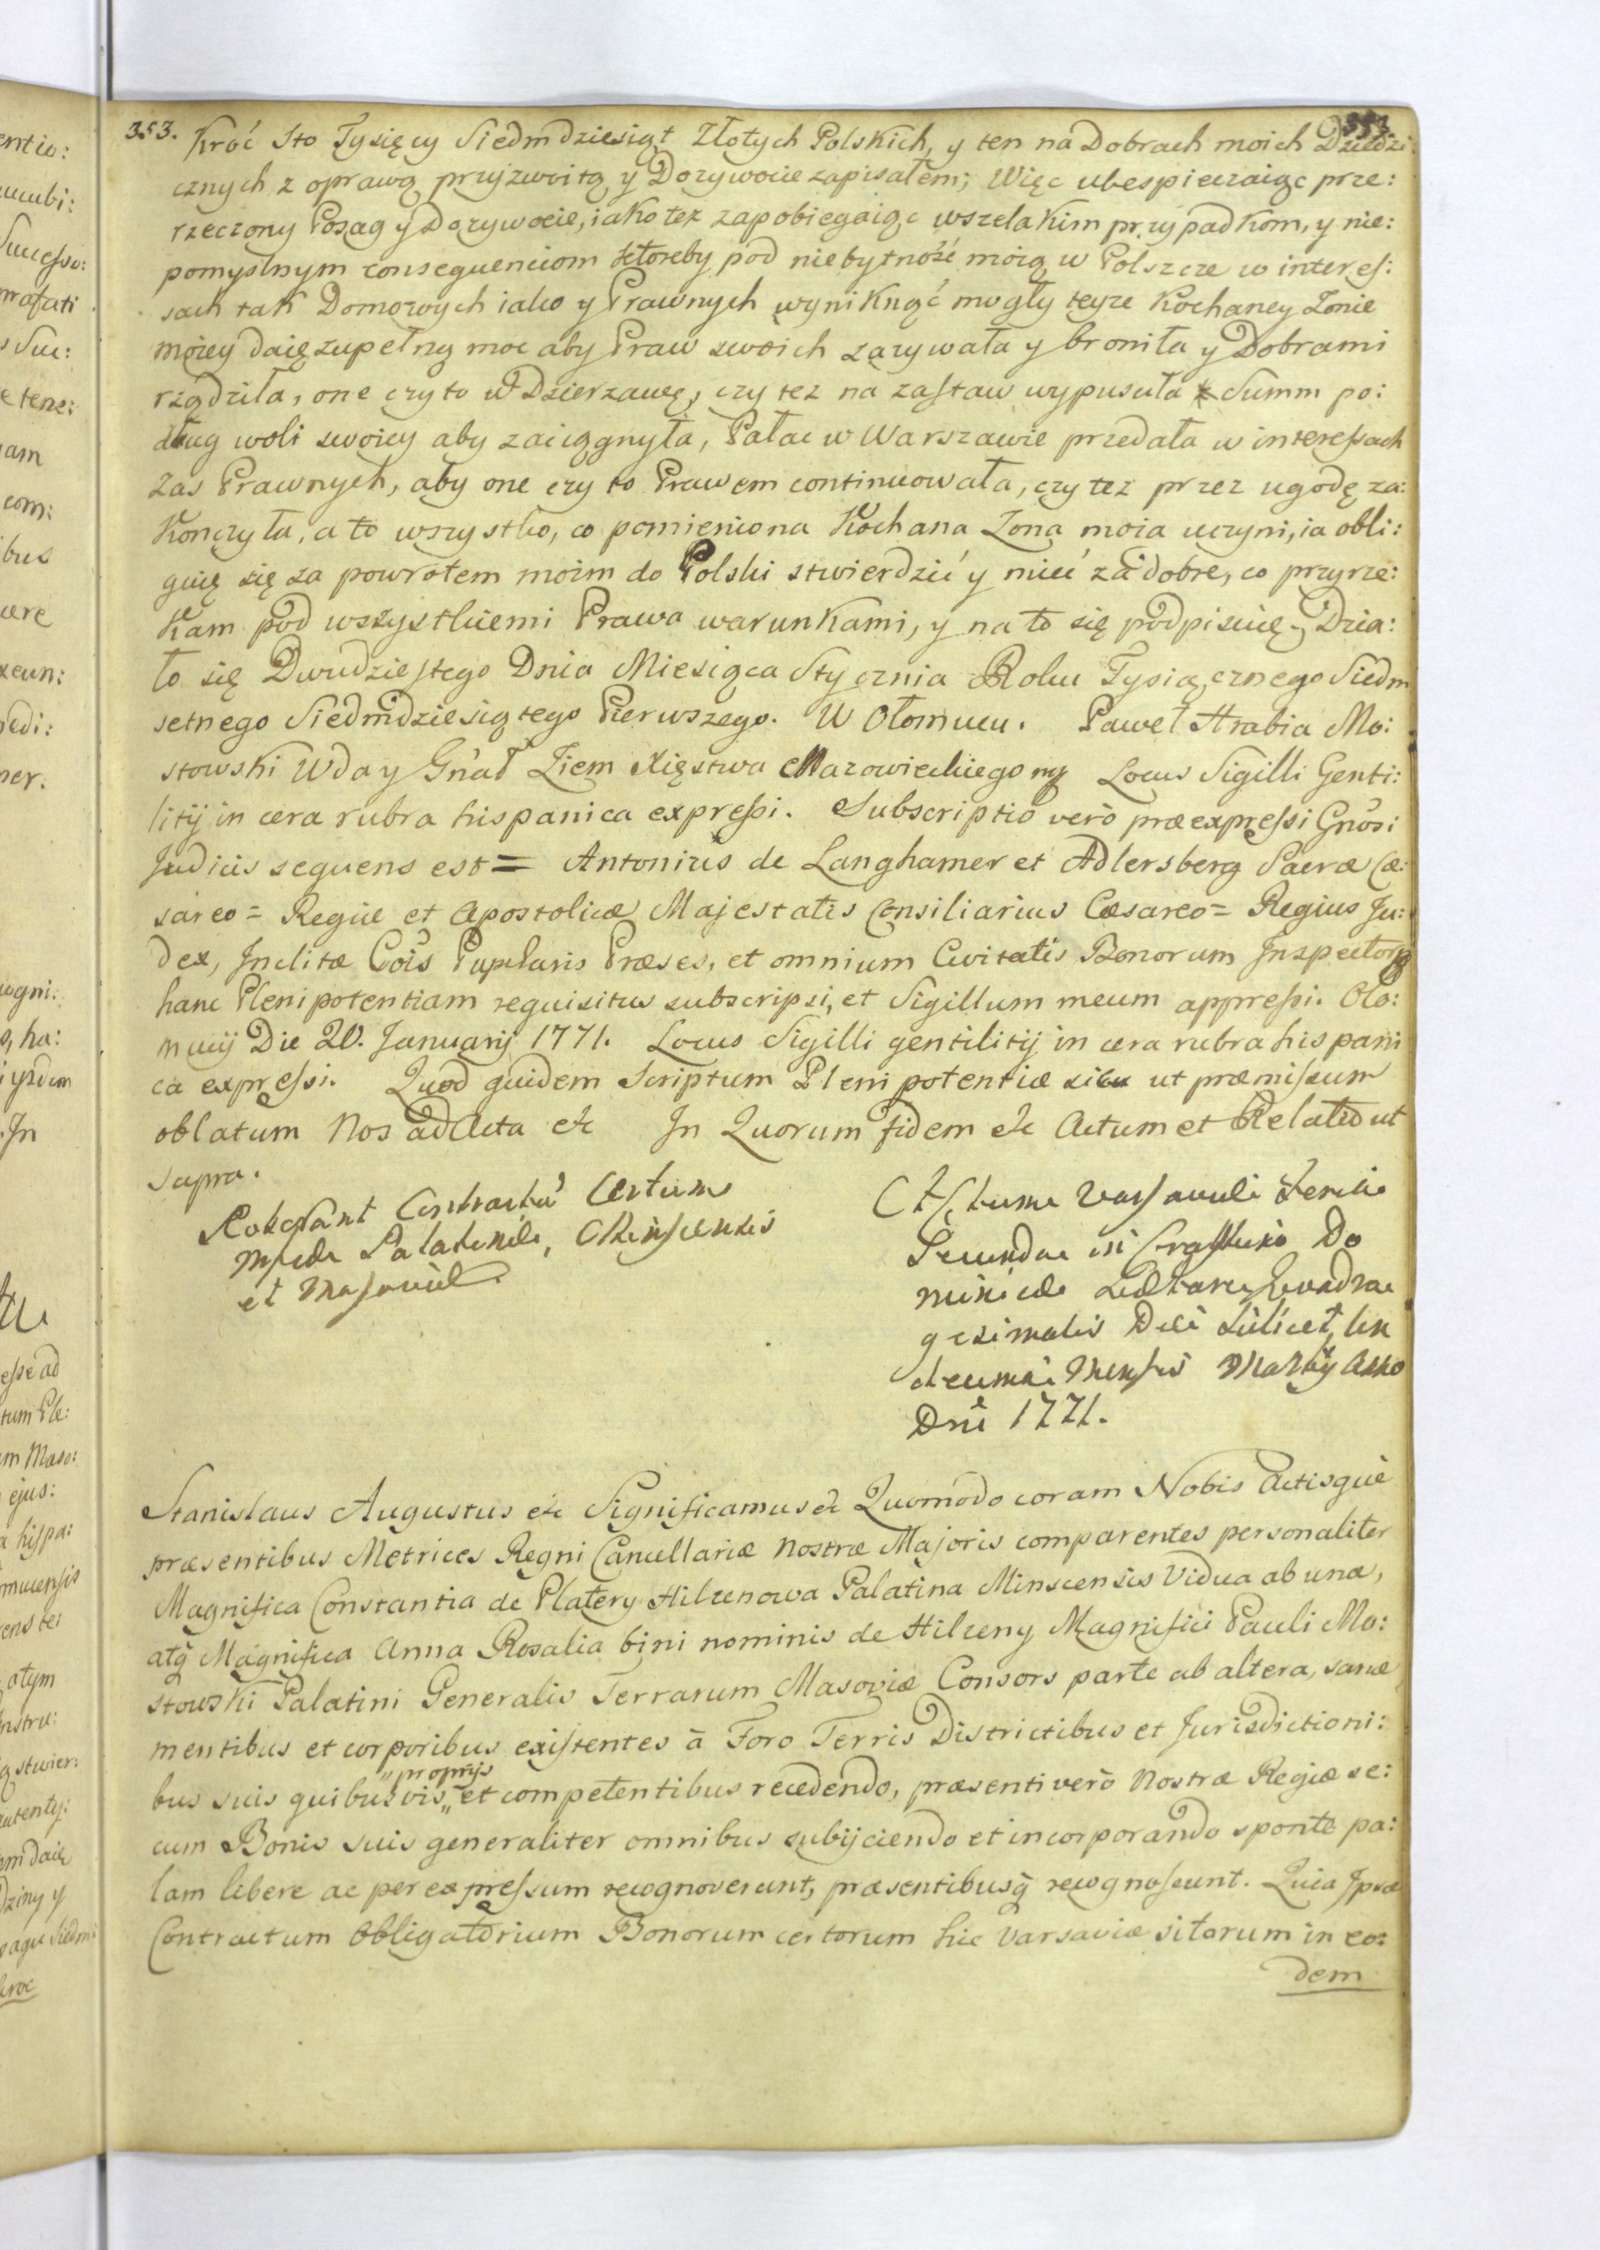 353. 353
Kroć Sto Tysięcy Siedmdziesiąt Złotych Polskich, y ten na Dobrach moich Dziedzi:
cznych z oprawą przyzwoitą y Dozywocie zapisałem; Więc ubespieczaiąc prze:
rzeczony Posag y Dozywocie, iako tez zapobiegaiąc wszelakim przypadkom, y nie:
pomyslnym consequenciom ktoreby pod niebytność moią w Polszcze w interes:
sach tak Domowych iako y Prawnych wyniknąć mogły teyze Kochaney Zonie
moiey daię zupełną moc aby Praw swoich zazywała y broniła y Dobrami
rządziła, one czy to w Dzierzawę, czy tez na zastaw wypusciła Summ po:
dług woli swoiey aby zaciągnyła, Pałac w Warszawie przedała w interessach
Zas Prawnych, aby one czy to Prawem continuowała, czy tez przez ugodę za:
Konczyła, a to wszystko, co pomieniona Kochana Zona moia uczyni, ia obli:
guię się za powrotem moim do Polski stwierdzić y mieć za dobre, co przyrze:
Kam pod wszystkiemi Prawa warunkami, y na to się podpisuię. Dzia:
ło się Dwudziestego Dnia Miesiąca Stycznia Roku Tysiącznego Siedm
setnego Siedmdziesiątego Pierwszego. W Ołomucu. Paweł Hrabia Mo:
stowski Wda y Gnał Ziem Xięstwa Mazowieckiego mp Locus Sigilli Genti:
litij in cera rubra hispanica expressi. Subscriptio vero præexpressi Gnosi
Judicis sequens est = Antonius de Langhamer et Adlersberg Sacræ Cæ:
sareo = Regiæ et Apostolicæ Majestatis Consiliarius Cæsareo = Regius Ju:
dex, Inclitæ Cois Pupilaris Præses, et omnium Civitatis Bonorum Inspector
hanc Plenipotentiam requisitus subscripsi, et Sigillum meum appressi. Olo:
mucij Die 20. Januarij 1771. Locus Sigilli gentilitij in cera rubra hispani
ca expressi. Quod quidem Scriptum Plenipotentiæ sibi ut præmissum
oblatum Nos ad Acta etc In Quorum fidem etc Actum et Relatio ut
supra.
Roborant Contractu Certum
Mficæ Palatinæ, Minscensis
et Masoviæ.
Actum Varsaviæ Feria
Secunda in Crastino Do
minicæ Lætare Quadra
gesimalis Die scilicet un
decima Mensis Martij Anno
Dni 1771.
Stanislaus Augustus etc Significamus etc Quomodo coram Nobis Actisque
præsentibus Metrices Regni Cancellariæ Nostræ Majoris comparentes personaliter
Magnifica Constantia de Platery Hilzenowa Palatina Minscensis Vidua ab una,
atq Magnifica Anna Rosalia bini nominis de Hilzeny Magnifici Pauli Mo:
stowski Palatini Generalis Terrarum Masoviæ Consors parte ab altera, sanæ
mentibus et corporibus existentes à Foro Terris Districtibus et Jurisdictioni:
bus suis quibusvis „proprijs„ et competentibus recedendo, præsenti verò Nostræ Regiæ se:
cum Bonis suis generaliter omnibus subijciendo et incorporando sponte pa:
lam libere ac per expressum recognoverunt, præsentibusq recognoscunt. Quia Ipsæ
Contractum Obligatorium Bonorum certorum hic Varsaviæ sitorum in eo:
dem